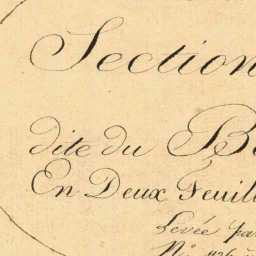 Section
dite du B
En Deux Feuill
Levée pa